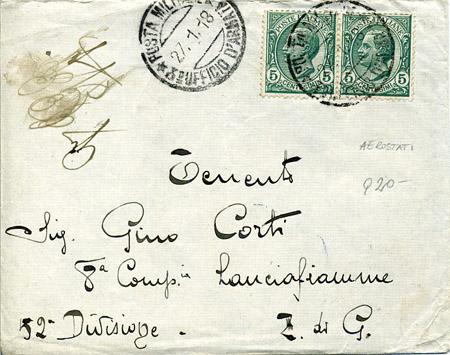 POSTA MILITARE
27.1.18
UFFICIO D'ARMATA
POSTE ITALIANE POSTE ITALIANE
5 5 5 5
CENTESIMI CENTESIMI
AEROSTATI
Tenente
Sig. Gino Corti
8ª Compia Lanciafiamme
52ª Divisione - Z. di G.